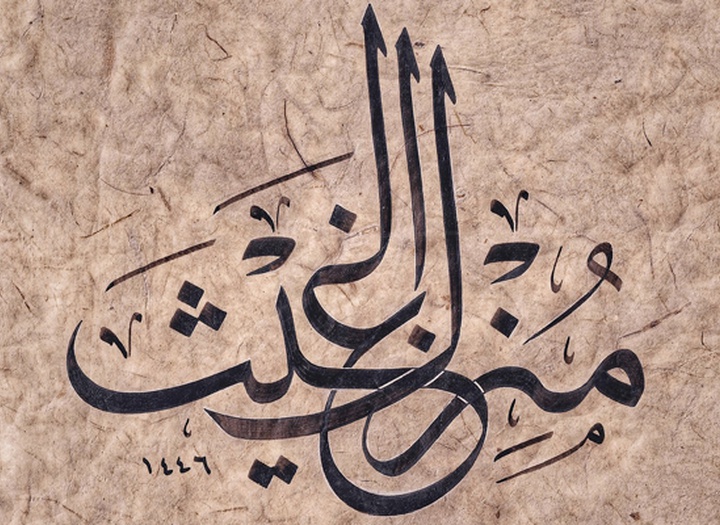 مُنْزِلُ الْغَيْثِ
١٤٤٦